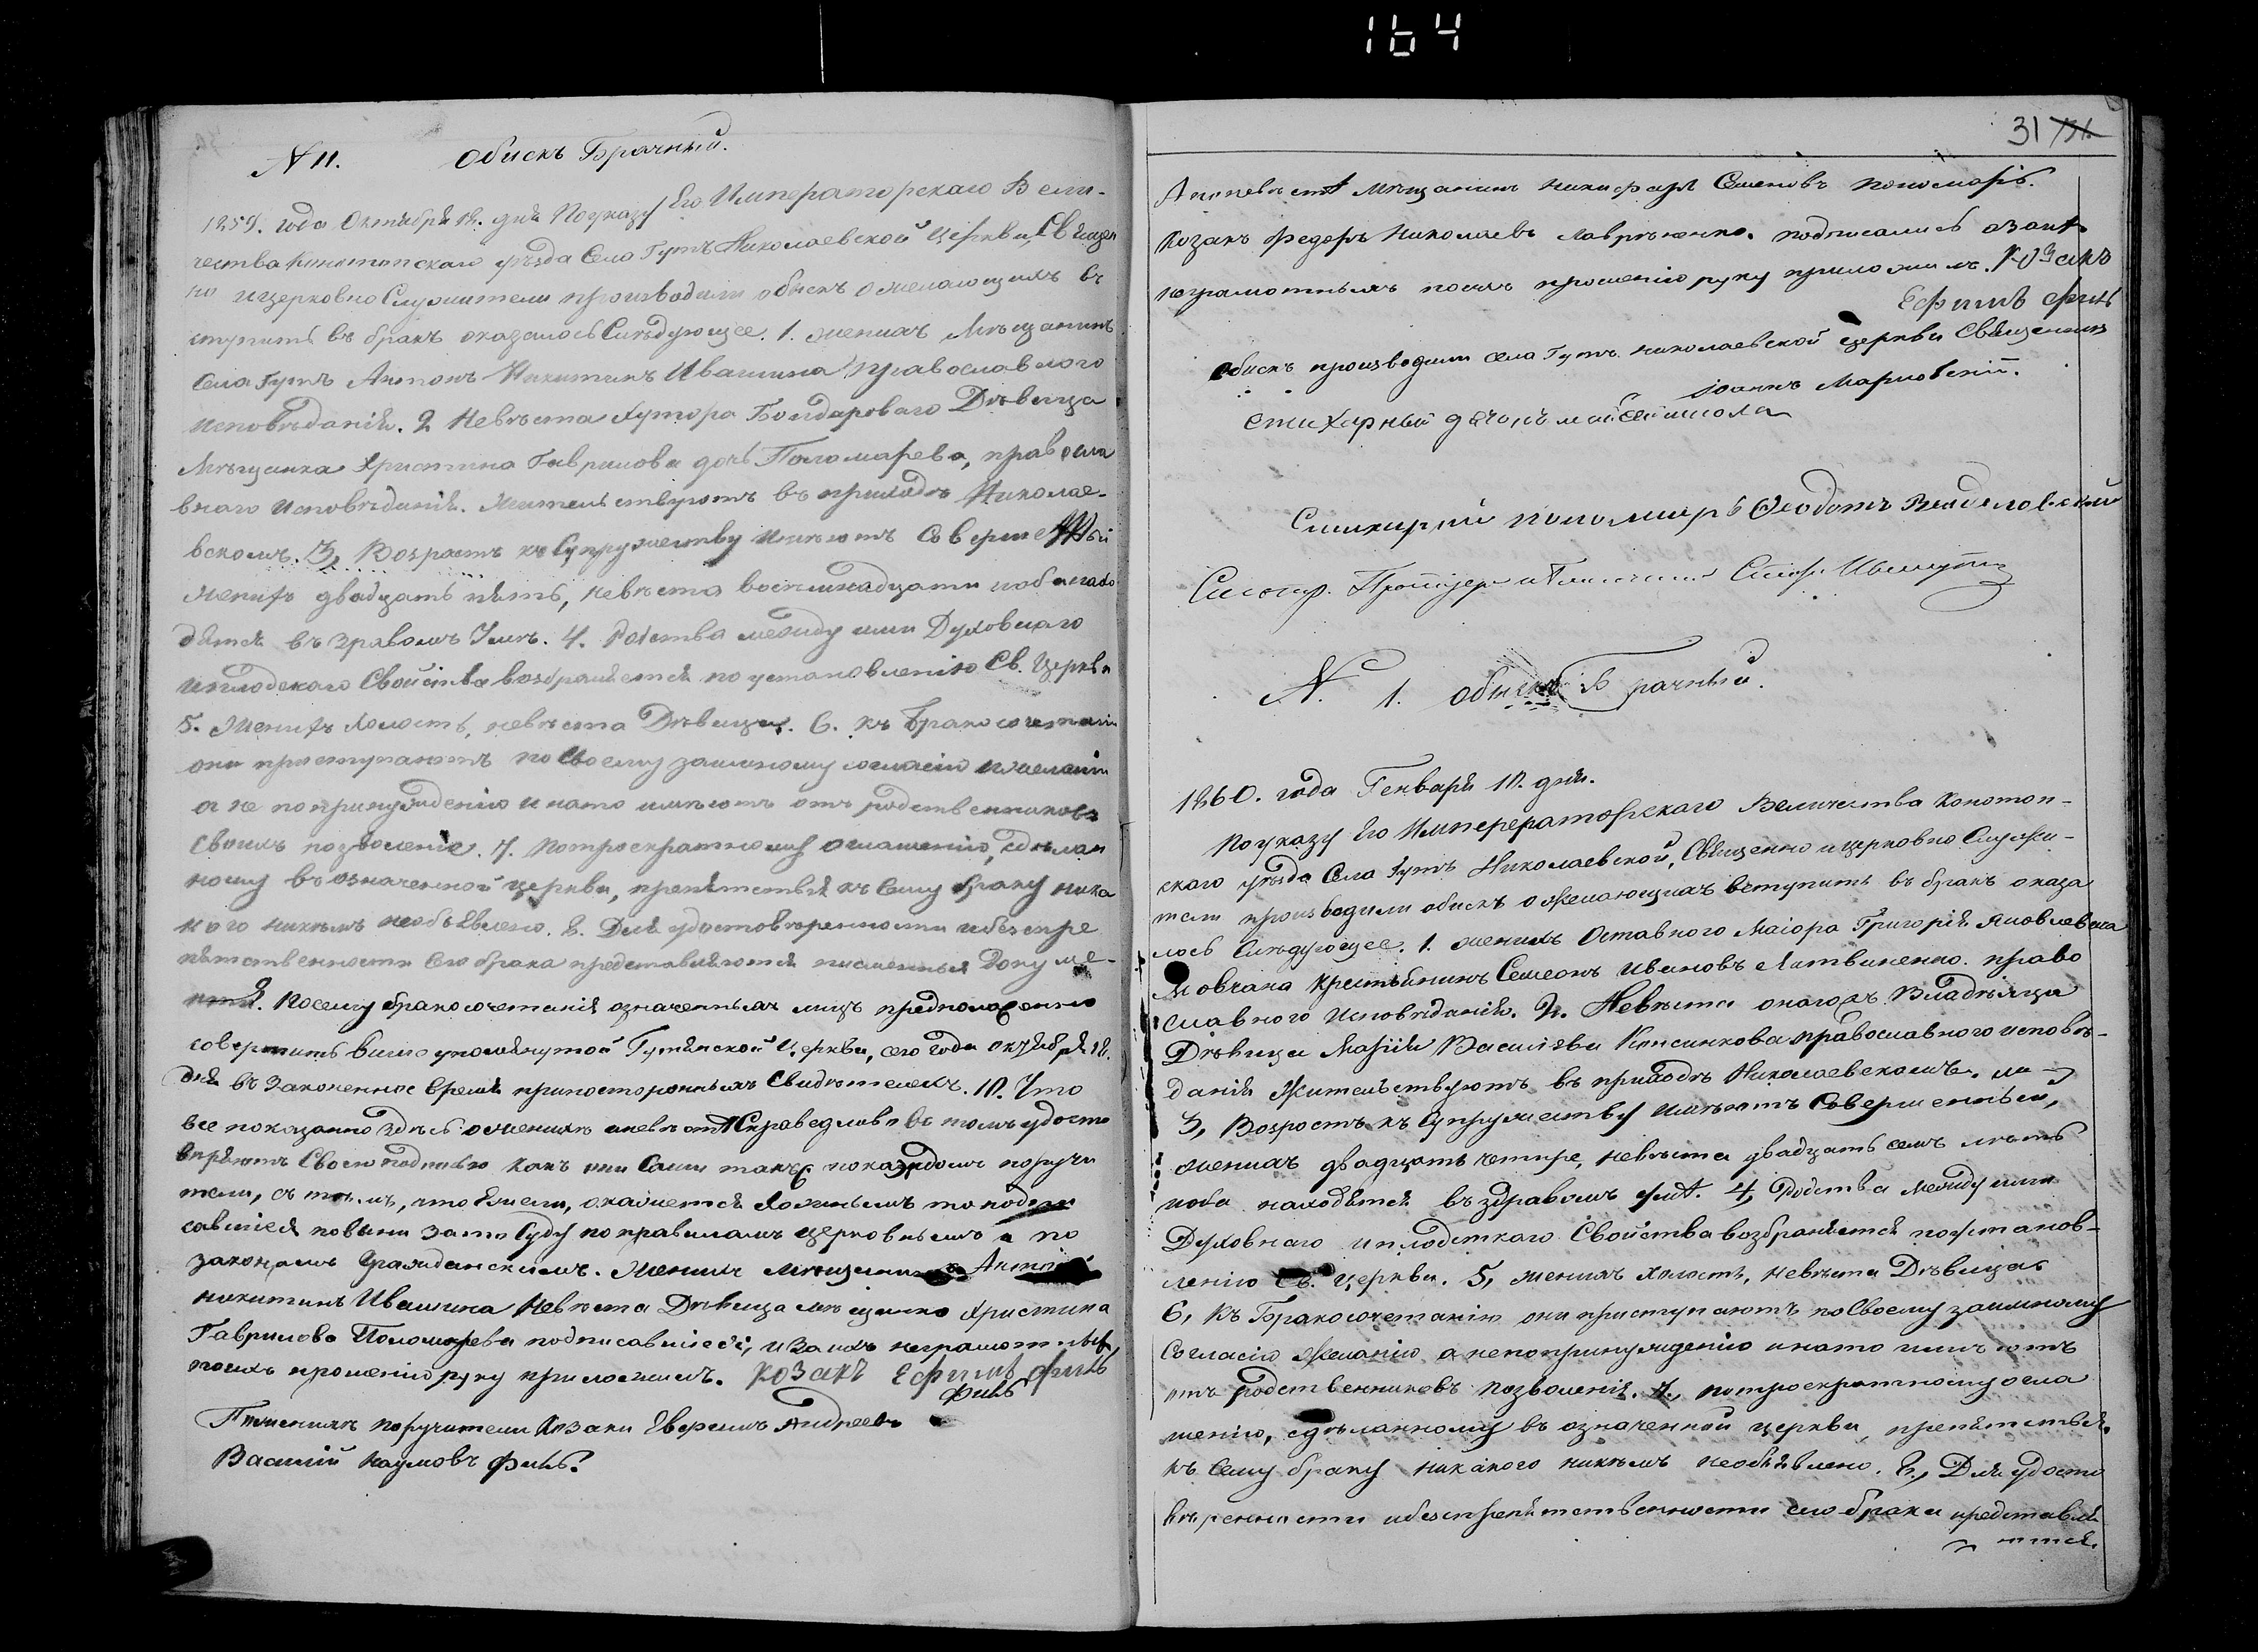 164
N 11. Обискъ Брачный.
1859. года Октября 18. дня Поуказу Его Императорскаго Вели-
чества Конотопскаго уѣзда Села Гутъ Николаевской Церкви, Священ
но ицерковно Служители производили обискъ ожелающихъ в
ступить въ бракъ оказалось Слѣдующее. 1. женихъ Мѣщанинъ
Села Гутъ Антонъ Никитинъ Ивашина православного
исповѣданія. 2 Невѣста Хутора Бондароваго Дѣвица
Мѣщанка Христина Гаврилова дочь Поломарева, правосла
вного исповѣданія. Жительствуютъ въ приходѣ Николае-
вскомъ. 3, Возрастъ къ Супружеству имѣютъ Совершенный
женихъ двадцать пять, невѣста восемнадцати иоба нахо
дятся въ зравомъ Умѣ. 4. Родства между ими Духовнаго
иплодскаго Свойства возбраняется по установленію Св. Церкви
5. Женихъ Холостъ, невѣста Дѣвица. 6. къ Бракосочетанію
они приступаютъ по Своему заимному согласію ижеланію
а не попринуждению инато имѣютъ отъ родственниковъ
Своихъ позволеніе. 7. Потроекратному оглашенію, сдѣлан
ному въ означенной церкви, препятствія къ Сему браку ника
кого никѣмъ необъявлено. 8. Для удостовѣренности ибезпре
пятственности Сего брака представляются письменныя Докуме-
нтя. Посему бракосочетания означенныхъ лицъ предположенно
совершить вышеупомянутой Гутянской Церкви, сего года октября 18.
дня въ Законенное время припостороннымъ Свидѣтелехъ. 10. Что
все показанно здѣсь оженихѣ иневѣстѣ Справедливо въ томъ удосто
вѣряютъ Своею подписью какъ они Сами такъ покаждомъ поручи
тели, съ тѣмъ, что
савшіеся повыни затѣ Суду поправиламъ церковнымъ и по
законамъ Гражданскимъ. Женихъ Мѣщанинъ Антонъ
никитинъ Ивашина Невѣста Дѣвица мѣщанка Христина
Гаврилова Поломарева подписавшіеся, изаихъ неграмотныхъ,
поихъ прошенію руку приложилъ. козакъ Ефимъ финь
финь
По женихѣ поручители Козаки Еверемъ Андреевъ
Василій Наумовъ финь.
31
Аповѣстѣ Мѣщанинъ Никифаръ Семеновъ пономарь.
Козакъ Федоръ Николаевъ лаврѣненко. подписались азаихъ
неграмотныхъ поихъ прошенію руку приложилъ. Козакъ
Ефимъ финь
обискъ производили села Гутъ. николаевской церкви Священикъ
іоаннъ Марковскій.
стихарный дячокъ
Стихарный пономарь Феодотъ
N. 1. обискъ Брачный.
1860. года Генваря 10. дня.
Поуказу Его Имперераторскаго Величества Конотоп-
скаго уѣзда Села Гутъ Николаевской, Священно ицерковно Служи-
тели производили обискъ ожелающихъ вступить въ бракъ оказа
лось Слѣдующее. 1. женихъ Оставного Маіора Григорія Яковлевича
Мовчана крестьянинъ Семеонъ Ивановъ Литвиненко. право
славного исповѣданія. 2. Невѣста оногожъ Владѣлца
Дѣвица Марія Василіева Кписинкова православного исповѣ-
данія Жительствуютъ въ приходѣ Николаевскомъ.
3, Возростъ къ Супружеству имѣютъ Совершенный,
женихъ двадцать четире, невѣста двадцать семъ лѣтъ
иоба находятся въздравомъ умѣ. 4, Родства между ими
Духовнаго иплодсткаго Свойства возбраняется поустанов-
ленію Св. церкви. 5, женихъ холостъ, невѣста Дѣвица
6, къ Бракосочетанію они приступаютъ по Своему заимному
Согласію Желанію а непопринуждению инато имѣютъ
отъ родственниковъ позволенія. 7, потроекратному огла
шенію, сдѣланному въ означенной церкви, препятствія.
къ Сему браку никакого никѣмъ необъявлено. 8, Для удосто
вѣренности ибезпрепятственности сего брака представля
ются.